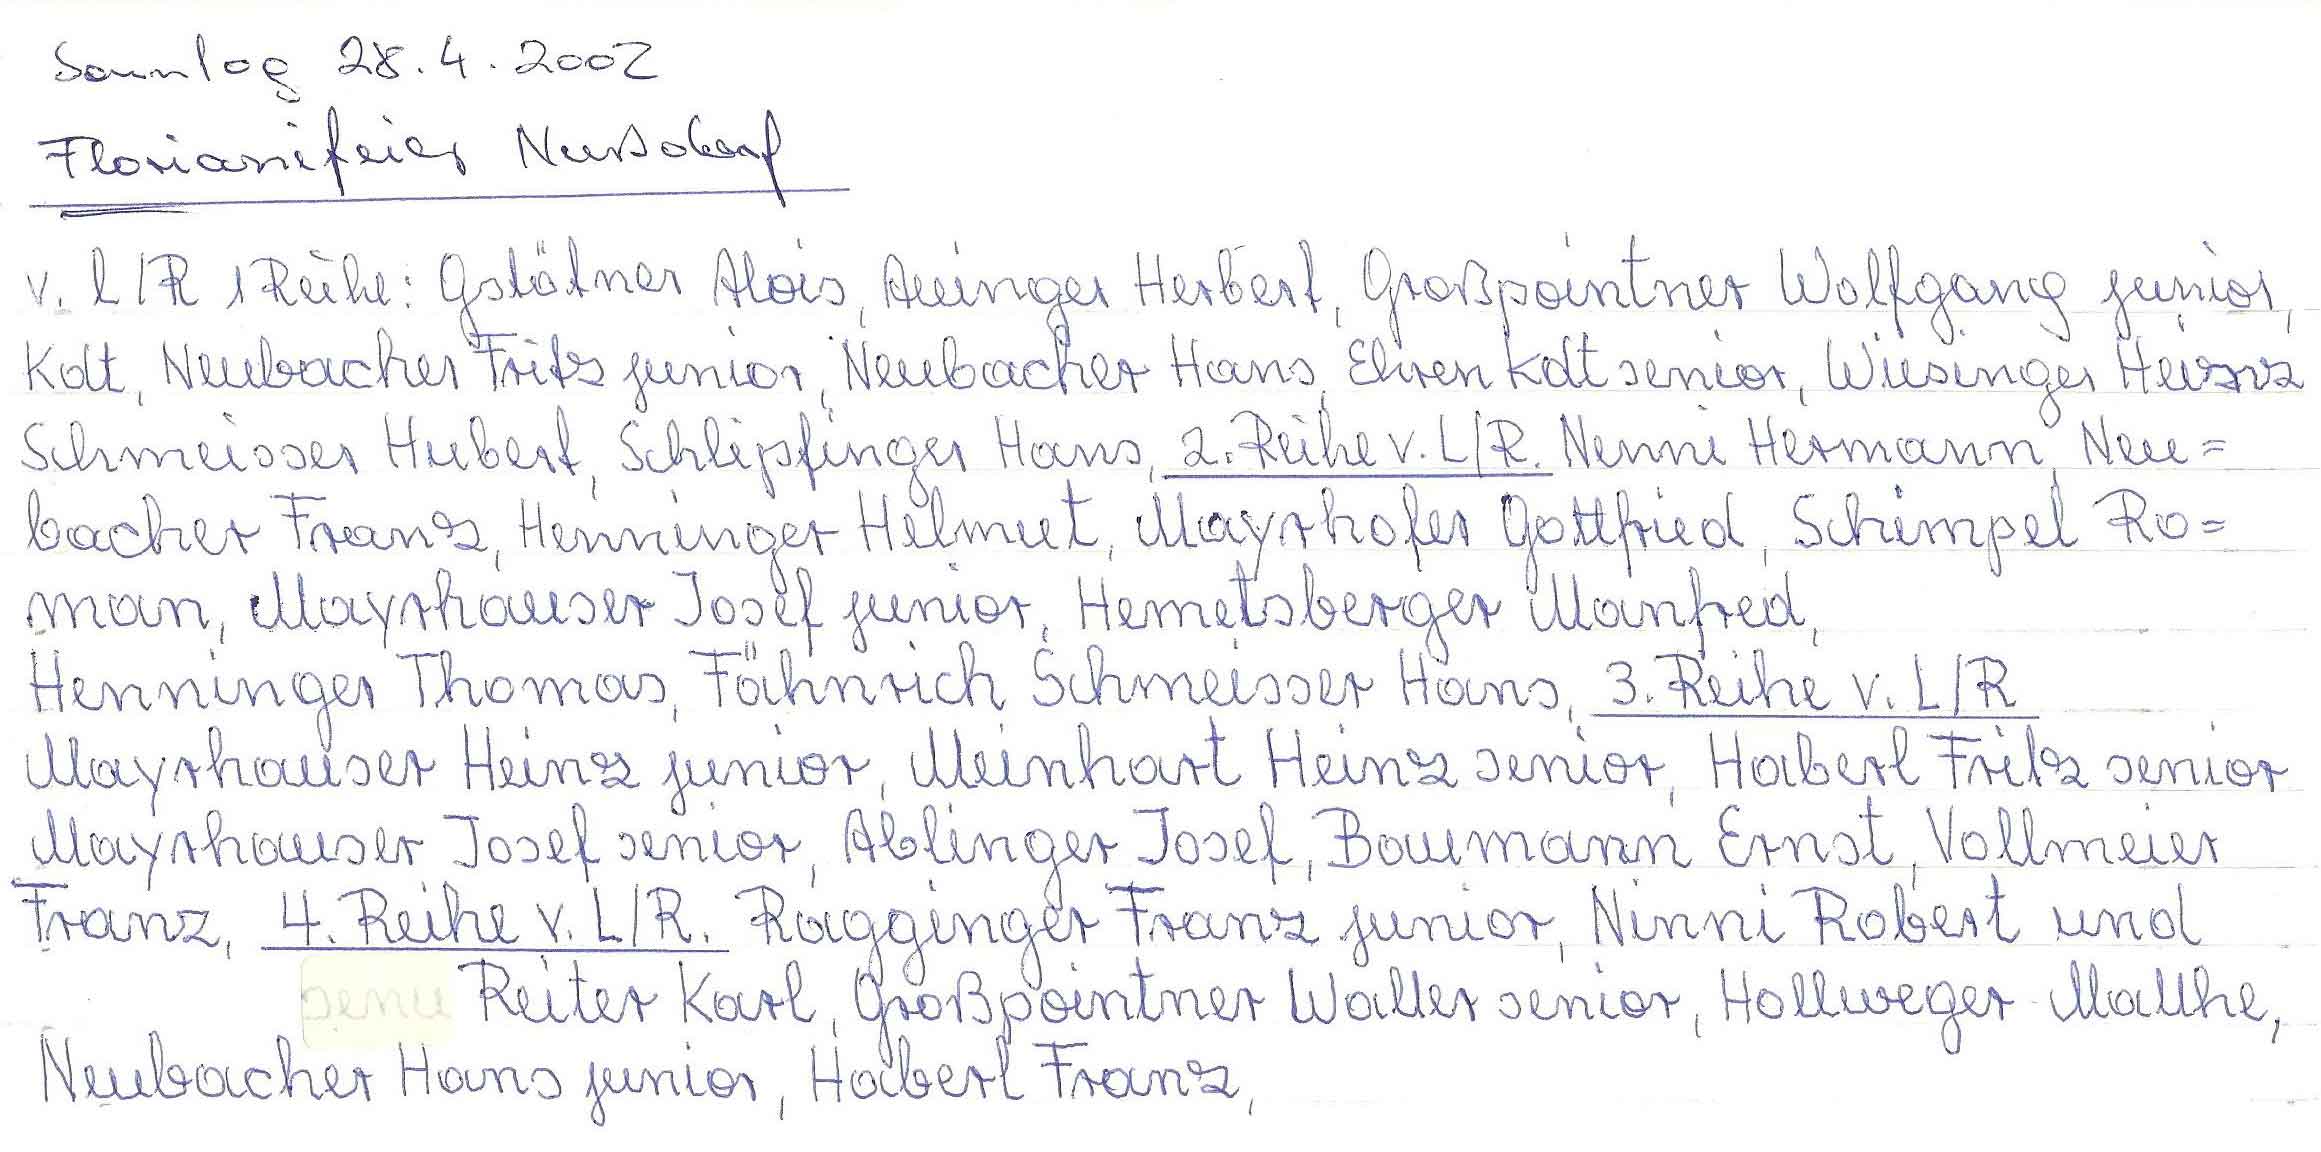 Sonntag 28.4.2002
Florianifeier Nußdorf
v. L/R 1 Reihe: Gstötner Alois, Auinger Herbert, Großpointner Wolfgang junior,
Kdt, Neubacher Fritz junior, Neubacher Hans, Ehren Kdt senior, Wiesinger Heinz
Schmeisser Hubert, Schlipfinger Hans, 2. Reihe v. L/R. Nenni Hermann, Neu=
bacher Franz, Henninger Helmut, Mayrhofer Gottfried, Schimpel Ro=
man, Mayrhauser Josef junior, Hemetsberger Manfred,
Henninger Thomas, Fähnrich Schmeisser Hans, 3. Reihe v. L/R
Mayrhauser Heinz junior, Meinhart Heinz senior, Haberl Fritz senior
Mayrhauser Josef senior, Ablinger Josef, Baumann Ernst, Vollmeier
Franz, 4. Reihe v. L/R. Ragginger Franz junior, Ninni Robert und
Reiter Karl, Großpointner Walter senior, Hollweger Matthe,
Neubacher Hans junior, Haberl Franz,